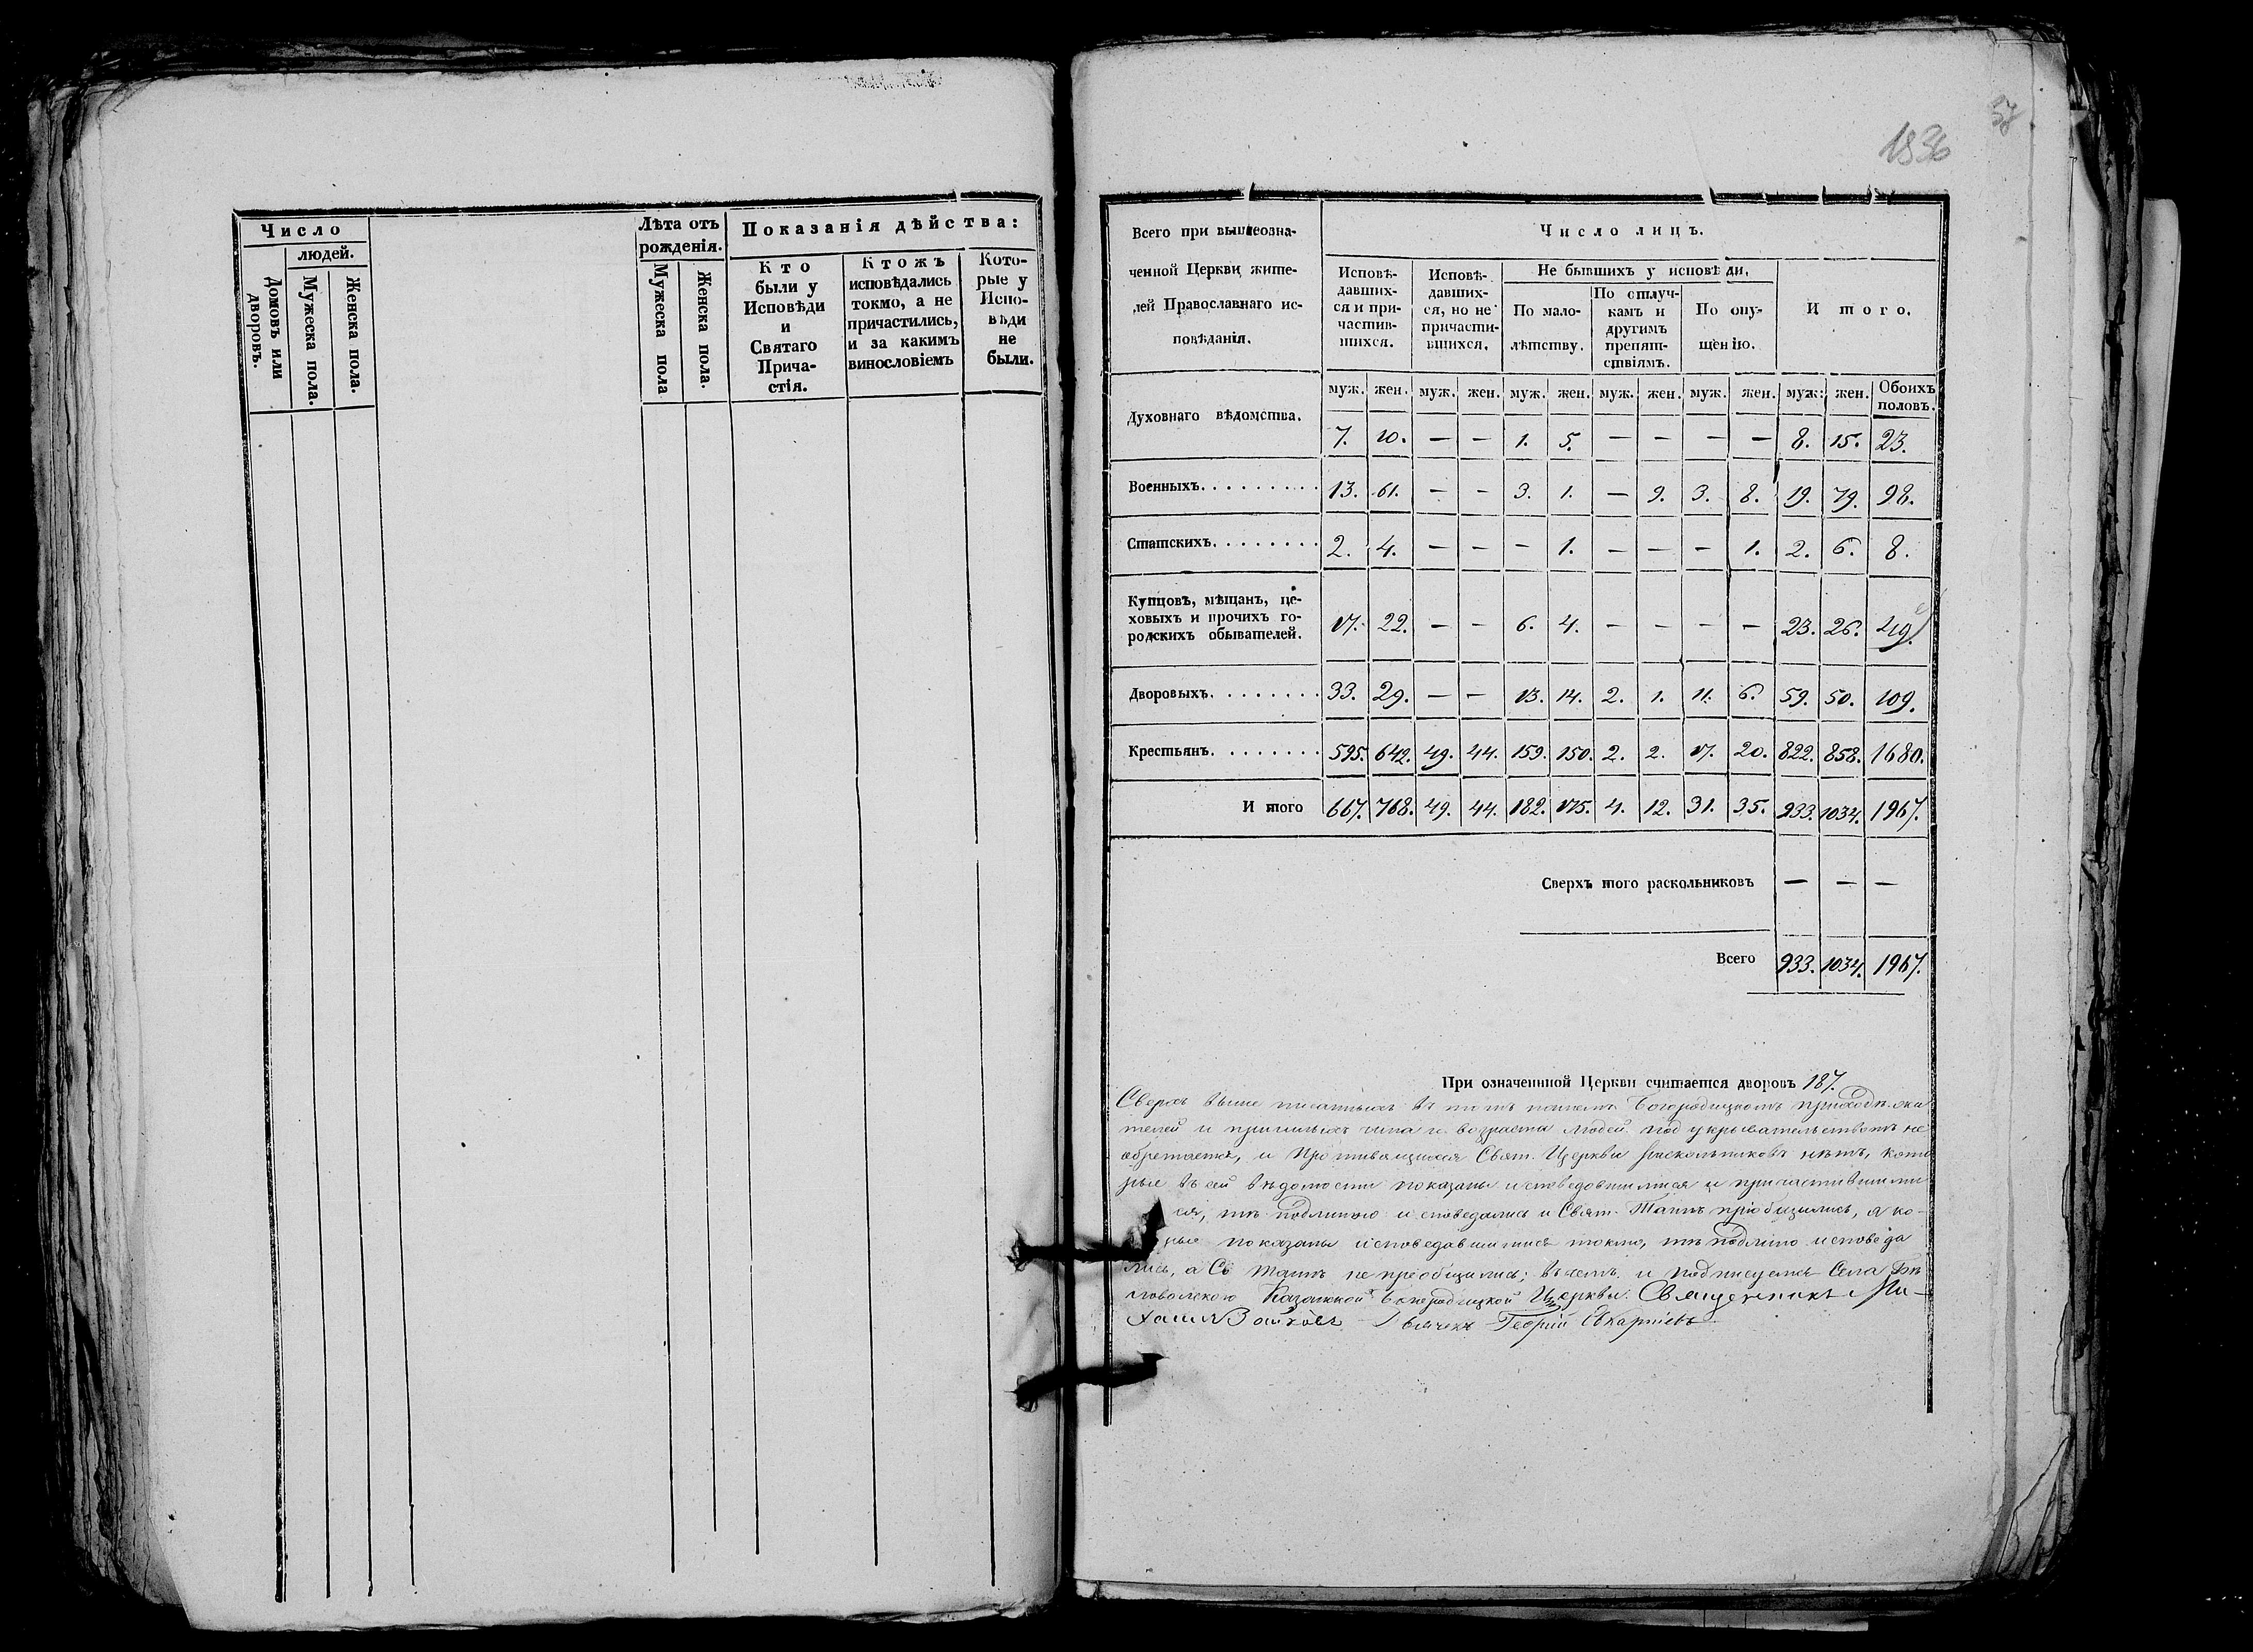 Число
людей.
Домовъ или дворовъ.
Мужеска пола.
Женска пола.
Лѣта отъ
рожденія.
Мужеска пола
Женска пола.
Показанія дѣйства:
Кто
были у
Исповѣди
и
Святаго
Прича-
стія.
Ктожъ
исповѣдались
токмо, а не
причастились,
и за какимъ
винословіемъ
Кото-
рые у
Испо-
вѣди
не
были.
57
1836
Всего при вышеозна-
ченной Церкви жите-
лей Православнаго ис-
повѣданія.
Число лицъ.
Исповѣ-
давших-
ся и при-
частив-
шихся.
Исповѣ-
давших-
ся, но не
причасти-
вшихся.
Не бывшихъ у исповѣди,
По мало-
лѣтству.
По отлуч-
камъ и
другимъ
препят-
ствіямъ.
По опу-
щенію.
И того.
муж. жен. муж. жен. муж. жен. муж. жен. муж. жен. муж: жен. Обоихъ половъ.
Духовнаго вѣдомства. 7. 10. — — 1. 5. — — — — 8. 15. 23.
Военныхъ. 13. 61. — — 3. 1. — 9. 3. 8. 19. 79. 98.
Статскихъ. 2. 4. — — — 1. — — — 1. 2. 6. 8.
Купцовъ, мѣщанъ, це-
ховыхъ и прочихъ го-
родскихъ обывателей. 17. 22. — — 6. 4. — — — — 23. 26. 49.
Дворовыхъ. 33. 29. — — 13. 14. 2. 1. 11. 6. 59. 50. 109.
Крестьянъ. 595. 642. 49. 44. 159. 150. 2. 2. 17. 20. 822. 858. 1680.
И того 667. 768. 49. 44. 182. 175. 4. 12. 31. 35. 933. 1034. 1967.
Сверхъ того раскольниковъ — — —
Всего 933. 1034. 1967.
При означенной Церкви считается дворовъ 187.
Сверхъ выше писанныхъ въ томъ Богородицкомъ приходѣ жи
телей и чина и возраста людей под укрывательствомъ не
обретается, и противящихся Свят. Церкви раскольниковъ нѣтъ, кото
рые въ сей вѣдомости показаны исповедовшимися и причастившими
ся, тѣ подлинно исповедались и Свят. Таинъ пріобщились, а ко-
рые показаны исповедавшимися токмо, тѣ подлино исповеда
лись, а Св Таинъ не преобщились; въ чемъ и подписуемся Села
Казанской Богородицкой Церкви. Священникъ Ми-
хаилъ Дьячекъ Георгій